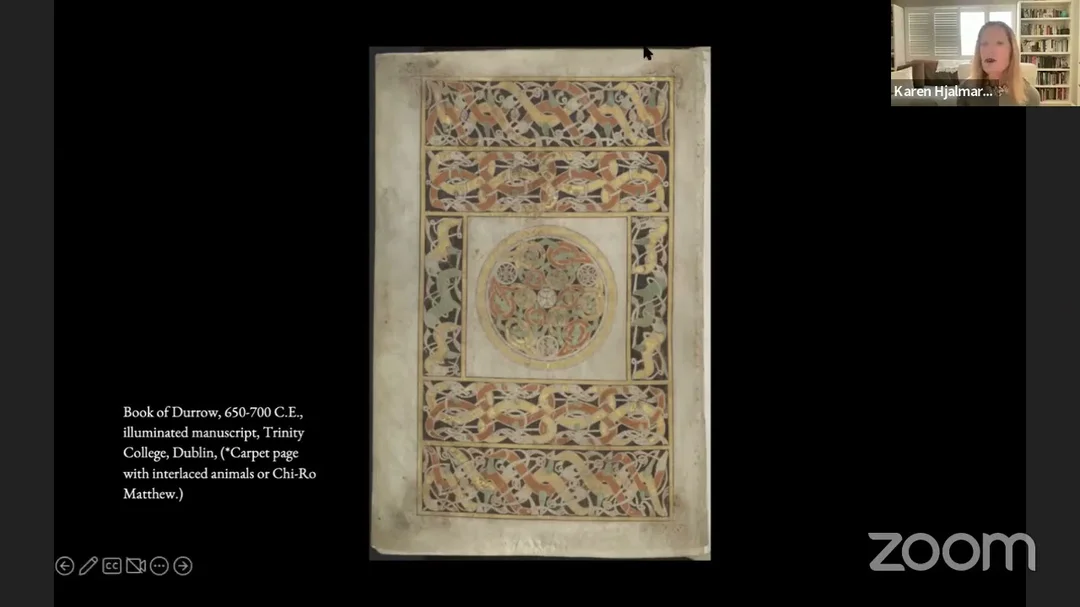 Karen Hjalmar...
Book of Durrow, 650-700 C.E.,
illuminated manuscript, Trinity
College, Dublin, (*Carpet page
with interlaced animals or Chi-Ro
Matthew.)
CC
zoom